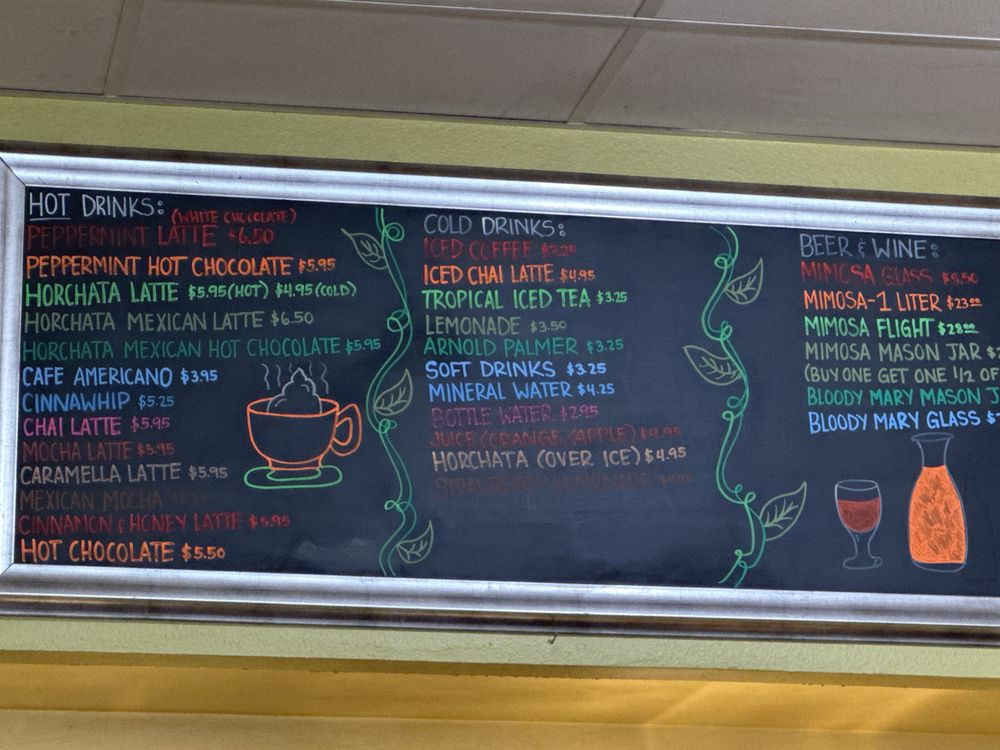 HOT DRINKS:
(WHITE CHOCOLATE)
PEPPERMINT LATTE $6.50
PEPPERMINT HOT CHOCOLATE $5.95
HORCHATA LATTE $5.95(HOT) $4.95(COLD)
HORCHATA MEXICAN LATTE $6.50
HORCHATA MEXICAN HOT CHOCOLATE $5.95
CAFE AMERICANO $3.95
CINNAWHIP $5.25
CHAI LATTE $5.95
MOCHA LATTE $5.95
CARAMELLA LATTE $5.95
MEXICAN MOCHA
CINNAMON & HONEY LATTE $5.95
HOT CHOCOLATE $5.50
COLD DRINKS:
ICED COFFEE $3.25
ICED CHAI LATTE $4.95
TROPICAL ICED TEA $3.25
LEMONADE $3.50
ARNOLD PALMER $3.25
SOFT DRINKS $3.25
MINERAL WATER $4.25
BOTTLE WATER $2.95
JUICE (ORANGE/APPLE) $4.95
HORCHATA (OVER ICE) $4.95
STRAWBERRY LEMONADE $4.95
BEER & WINE:
MIMOSA GLASS $9.50
MIMOSA-1 LITER $23.00
MIMOSA FLIGHT $28.00
MIMOSA MASON JAR
(BUY ONE GET ONE 1/2 OF
BLOODY MARY MASON J
BLOODY MARY GLASS